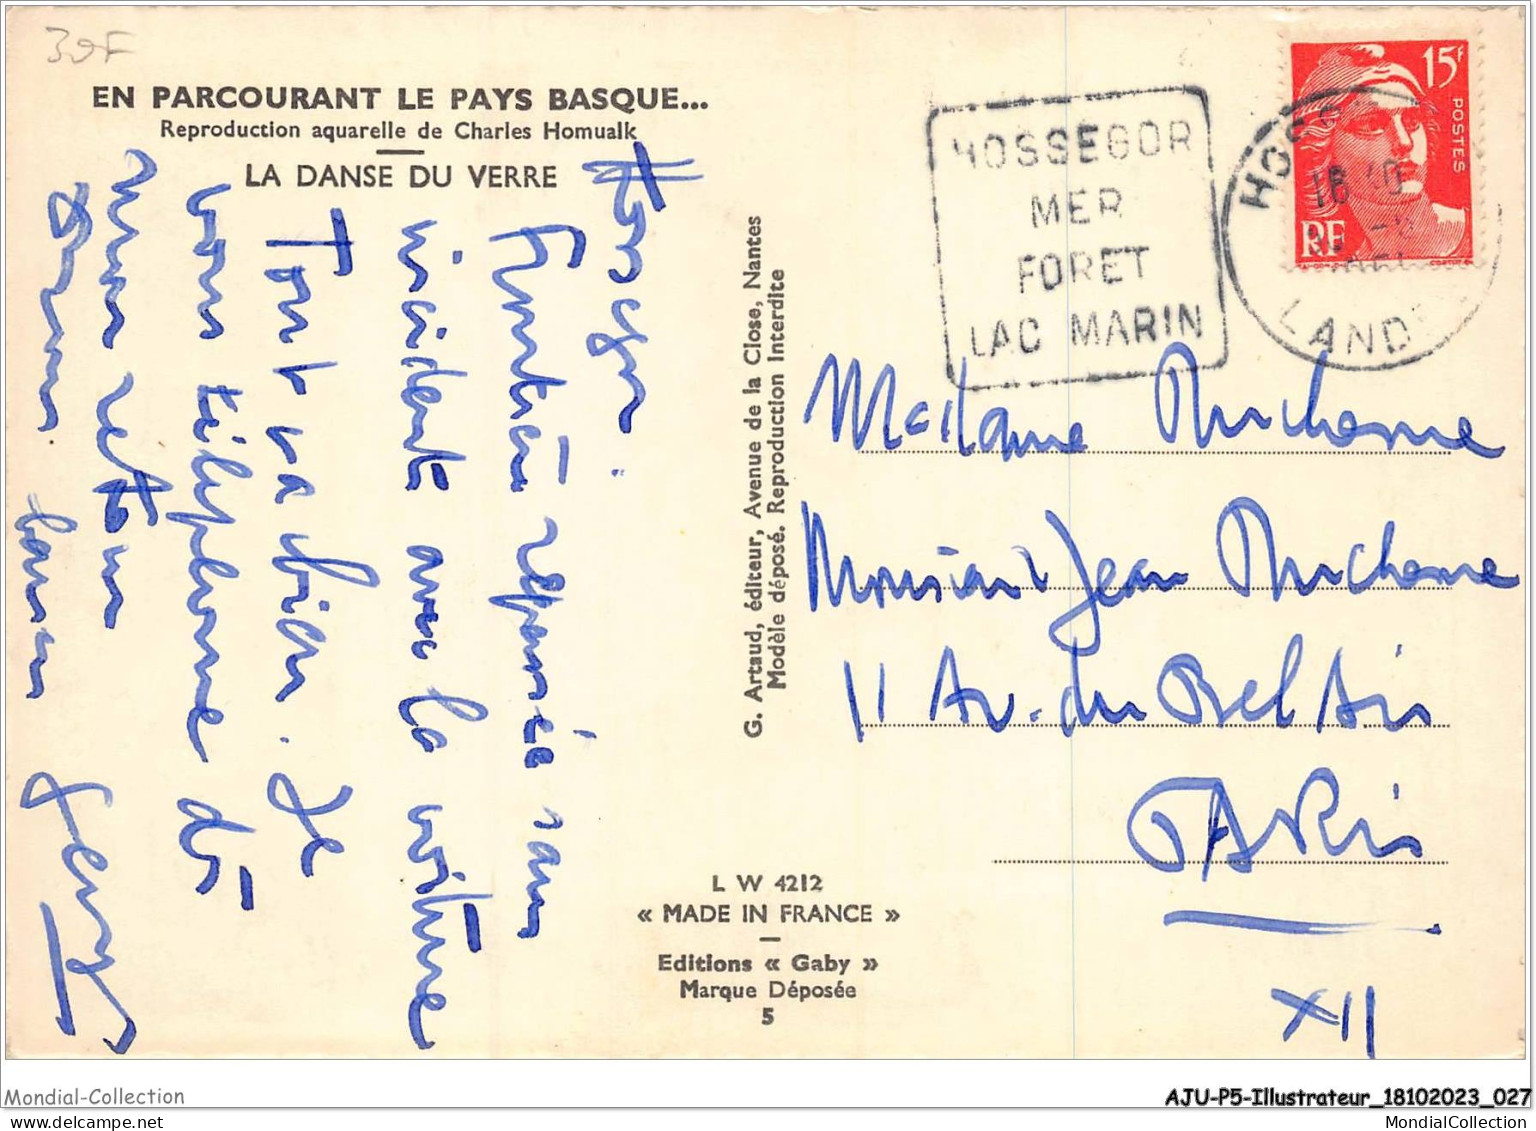 39F
EN PARCOURANT LE PAYS BASQUE...
Reproduction aquarelle de Charles Homualk
LA DANSE DU VERRE
Hossegor.
Frontière repassée sans
incident avec la voiture
Tout va bien. Je
vous téléphone dès
mon retour
bons baisers
G. Artaud, éditeur, Avenue de la Close, Nantes
Modèle déposé. Reproduction Interdite
L W 4212
« MADE IN FRANCE »
Editions « Gaby »
Marque Déposée
5
HOSSEGOR
MER
FORET
LAC MARIN
15F
POSTES
RF
HOSS
LANDES
Madame Duchesne
Monsieur Jean Duchesne
11 Av. du Bel Air
PARIS
XII
Mondial-Collection
AJU-P5-Illustrateur_18102023_027
MondialCollection